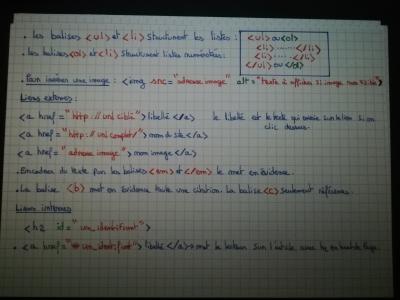 . les balises <ul> et <li> structurent les listes :
<ul> ou <ol>
<li> ..... </li>
<li> ..... </li>
</ul> ou </ol>
. les balises <ol> et <li> structurent listes numérotées :
. Pour insérer une image : <img src="adresse image" alt="texte à afficher si image non
Liens externes :
<a href="http://url cible"> libellé </a> le libellé est le texte qui envoie sur le lien si on
clic dessus.
<a href="http://url complet/"> nom du site </a>
<a href="adresse image"> nom image </a>
. Encadrer du texte par les balises <em> et </em> le met en évidence.
. La balise <b> met en évidence toute une citation. La balise <c> seulement référence.
Liens internes
<h2 id="un_identifiant">
. <a href="#un_identifiant"> libellé </a> → met le lecteur sur l'article avec h2 en haut de page.